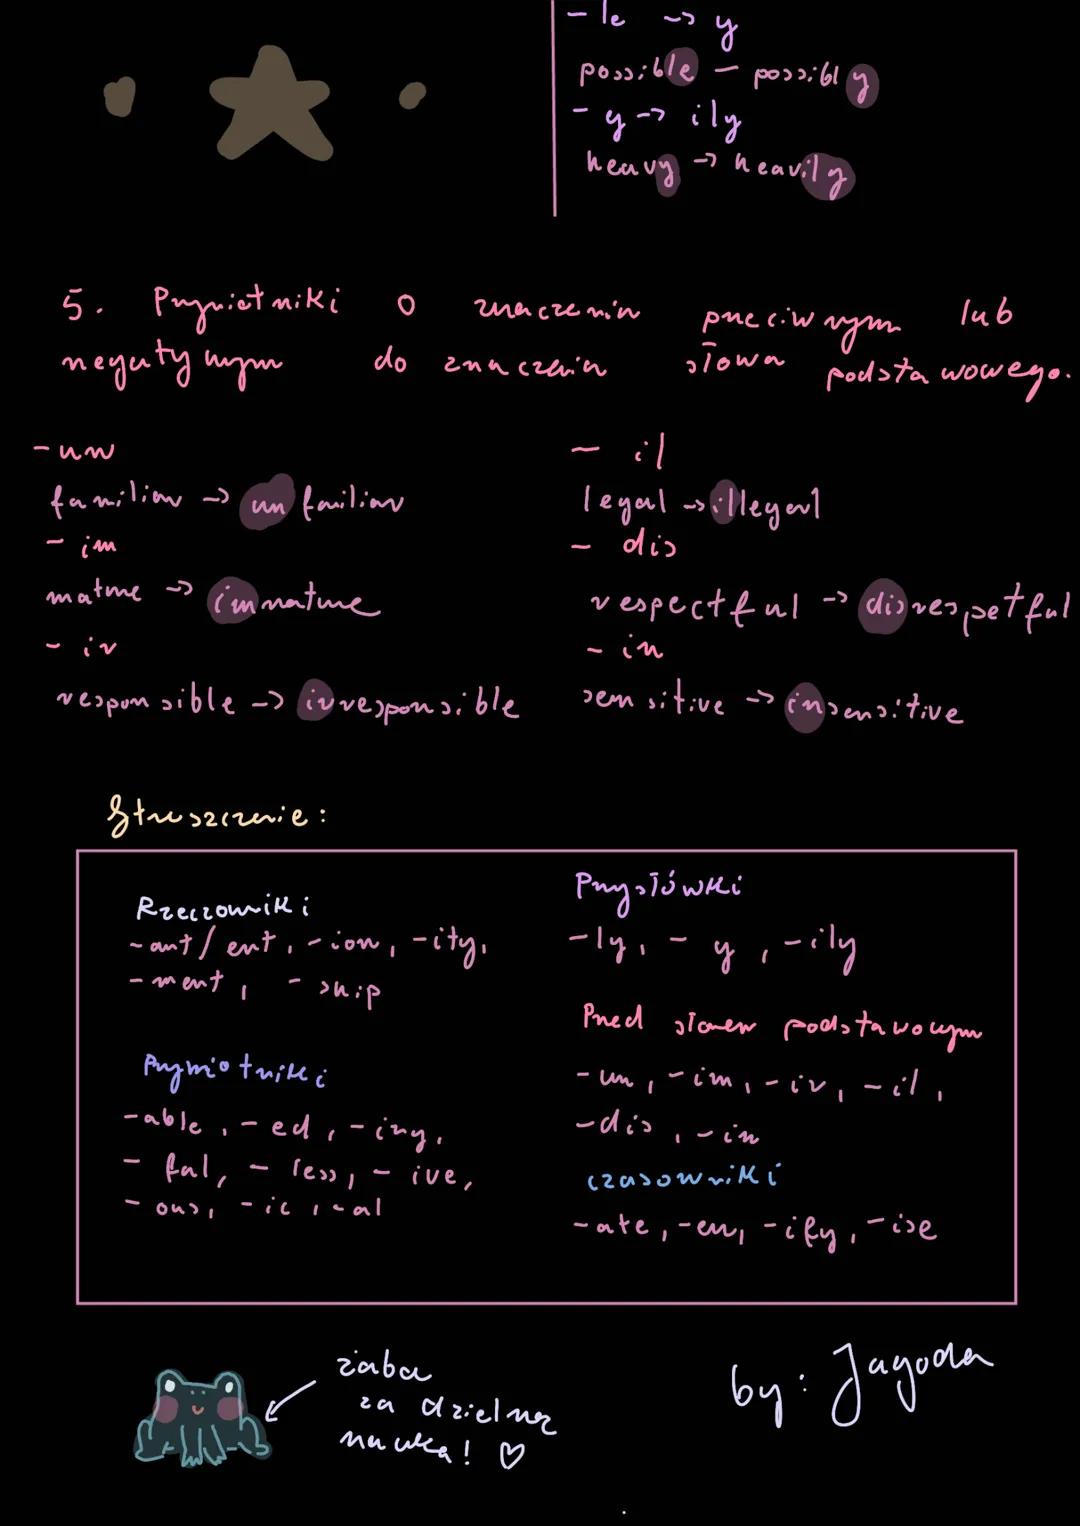 - le -> y
possible - possibly
- y -> ily
heavy -> heavily
5. Przymiotniki o znaczeniu przeciwnym lub
negatywnym do znaczenia słowa podstawowego.
- un
familiar -> unfailiar
- im
mature -> immature
- ir
responsible -> irresponsible
- il
legal -> illegal
- dis
respectful -> disrespetful
- in
sensitive -> insensitive
Streszczenie:
Rzeczowniki
- ant/ent, -ion, -ity,
- ment, -ship
Przymiotniki
-able, -ed, -ing,
- ful, - less, - ive,
- ous, -ic, -al
Przysłówki
-ly, - y, -ily
Przed słowem podstawowym
-un, -im, -ir, -il,
-dis, -in
czasowniki
-ate, -en, -ify, -ise
żaba
za dzielną
naukę! ♡
by: Jagoda